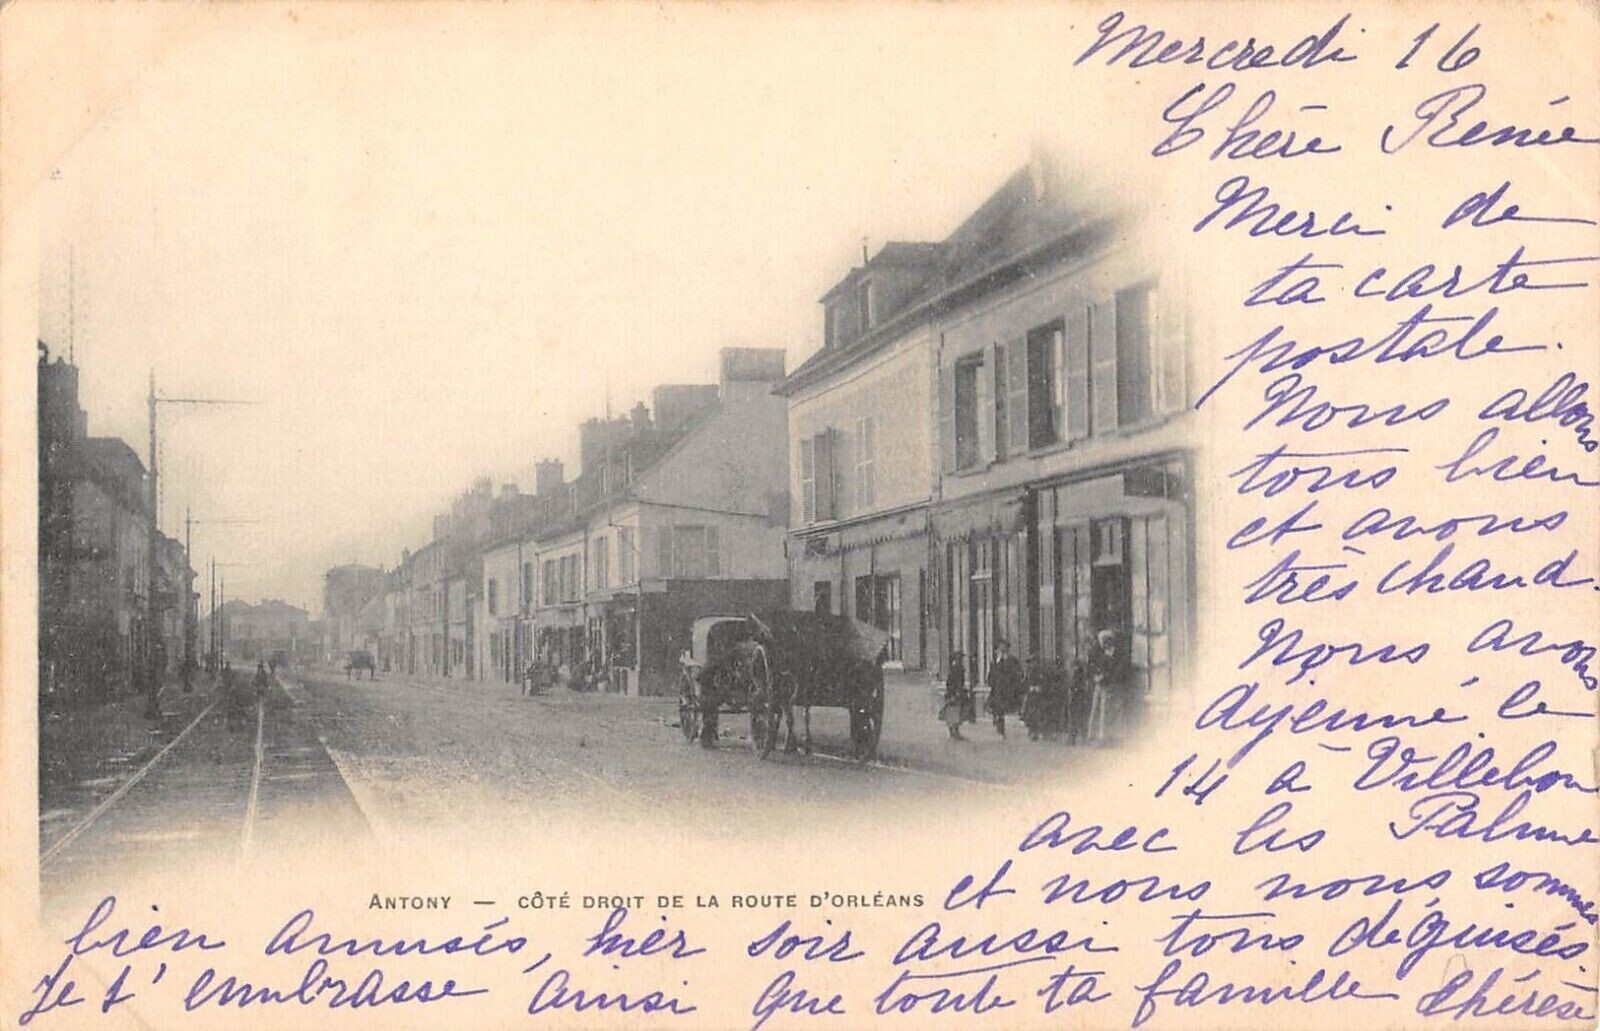 Mercredi 16
Chère Renée
Merci de
ta carte
postale.
Nous allons
tous bien
et avons
très chaud.
Nous avons
déjeuné le
14 à Villebon
avec les Palme
et nous nous sommes
bien amusés, hier soir aussi tous déguisés.
Je t'embrasse ainsi que toute ta famille Thérèse
ANTONY — CÔTÉ DROIT DE LA ROUTE D'ORLÉANS